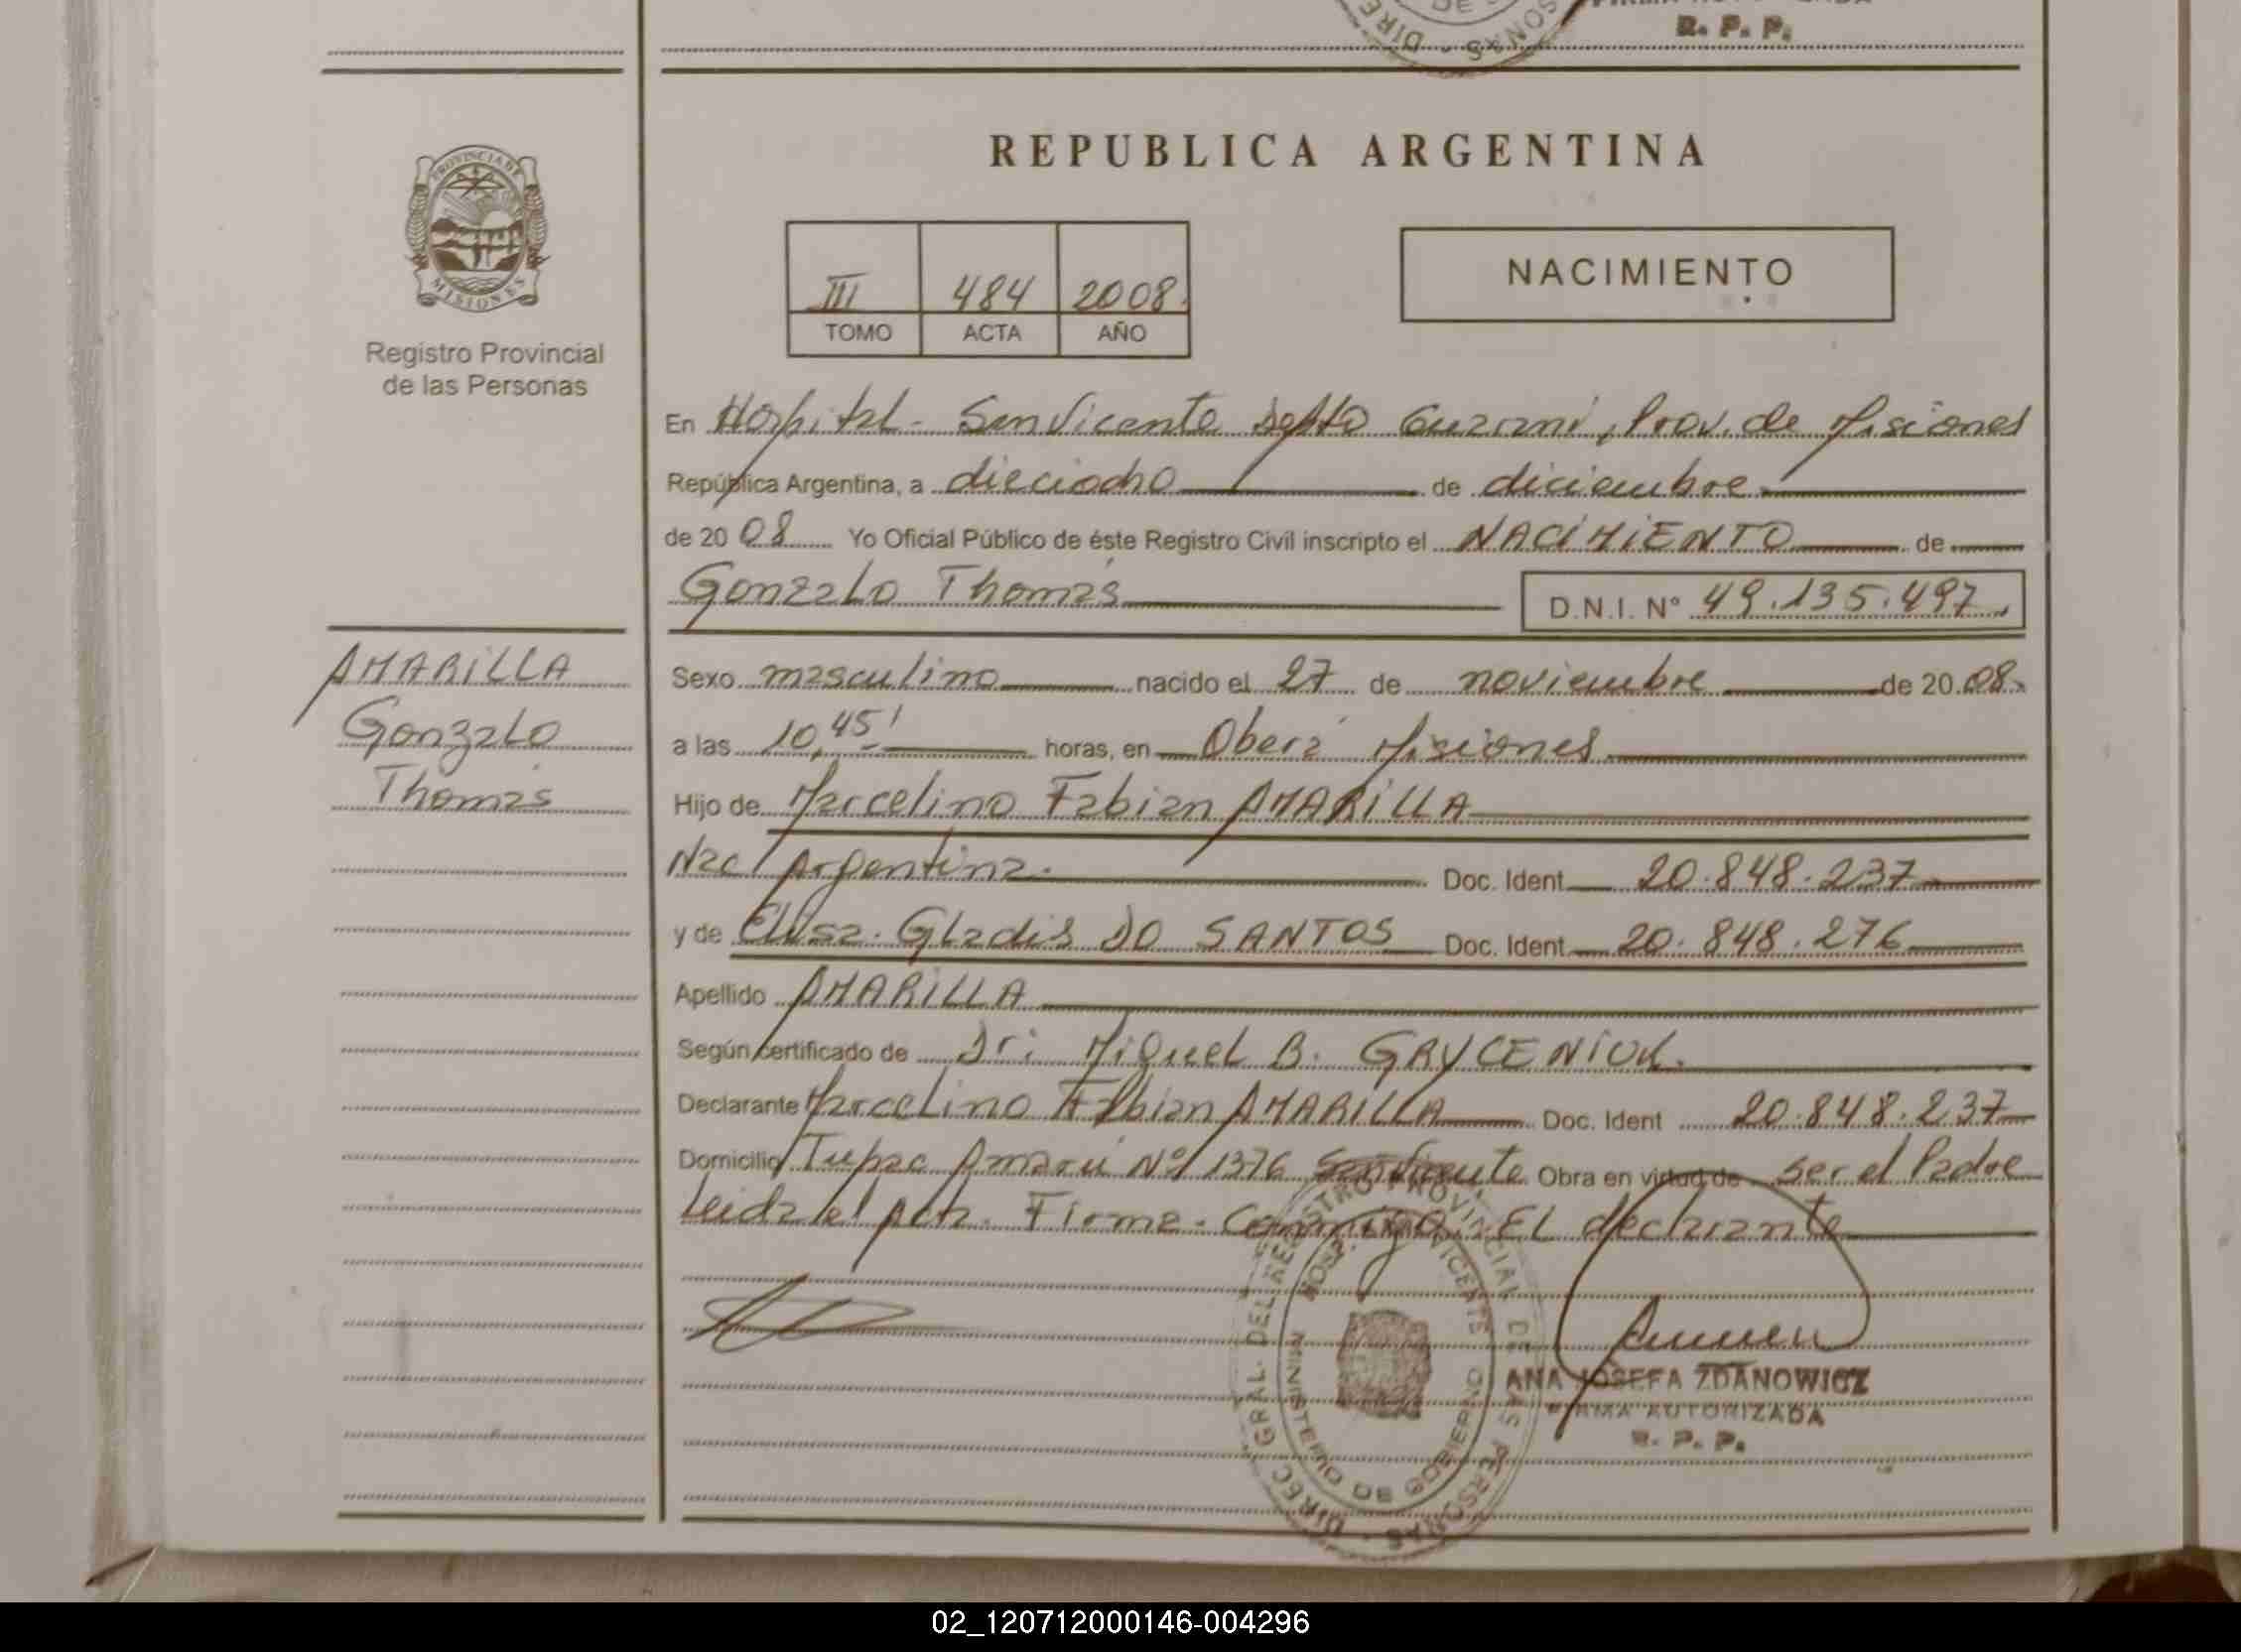 DE
DIREC
SONAS
R. P. P.
PROVINCIA DE
MISIONES
Registro Provincial
de las Personas
REPUBLICA ARGENTINA
III 484 2008
TOMO ACTA AÑO
NACIMIENTO
En Hospital - San Vicente Depto Guaraní, Prov. de Misiones
República Argentina, a dieciocho de diciembre
de 20 08 Yo Oficial Público de éste Registro Civil inscripto el NACIMIENTO de
Gonzalo Thomás D.N.I. Nº 49.135.497
AMARILLA
Gonzalo
Thomás
Sexo masculino nacido el 27 de noviembre de 20 08
a las 10,45' horas, en Oberá Misiones
Hijo de Marcelino Fabian AMARILLA
Nac/ Argentina. Doc. Ident 20.848.237
y de Elusa Gladis DO SANTOS Doc. Ident 20.848.276
Apellido AMARILLA
Según certificado de Dr: Miguel B. GAYCENIUK.
Declarante Marcelino Fabian AMARILLA Doc. Ident 20.848.237
Domicilio Tupac Amarú Nº 1376 San Vicente Obra en virtud de ser el Padre
Leida el Acta. Firma. Conmigo. EL declarante
DIREC. GRAL. DEL REGISTRO PROVINCIAL DE LAS PERSONAS
HOSP. VICENTE
MINISTERIO DE GOBIERNO
ANA JOSEFA ZDANOWICZ
FIRMA AUTORIZADA
R. P. P.
02_120712000146-004296